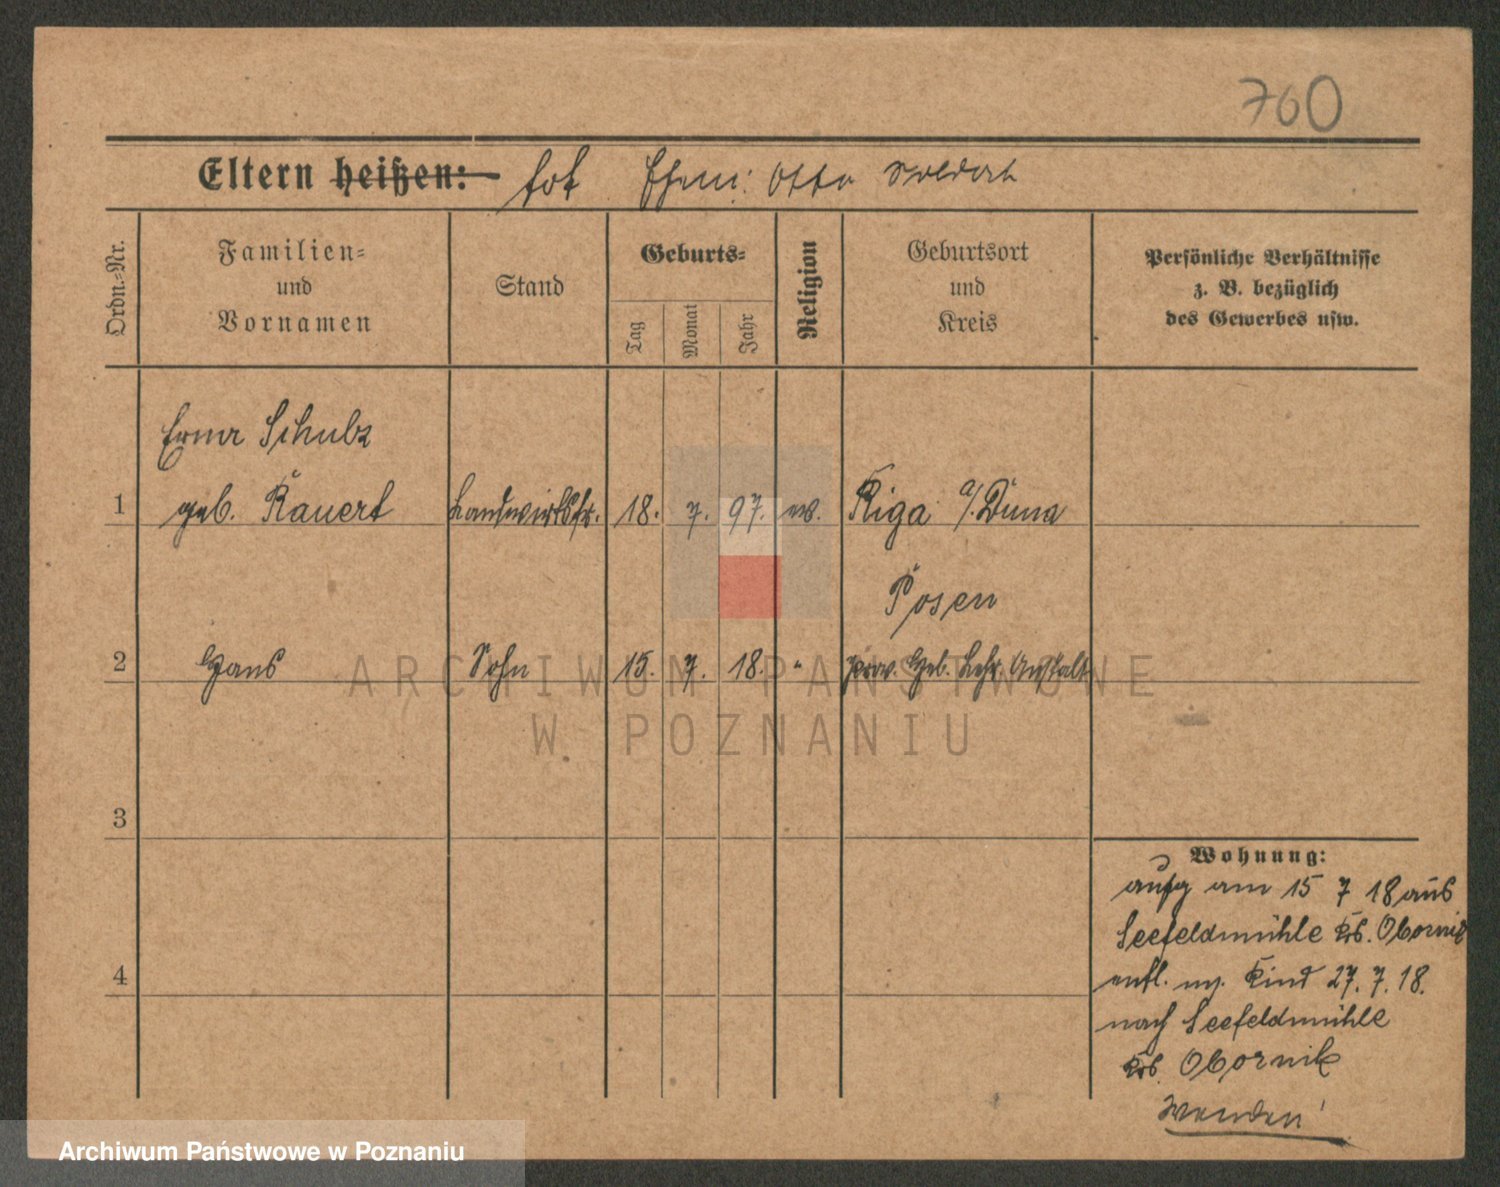 760
Eltern heißen: tot Ehem: Otto Soldat
Ordn.-Nr.
Familien-
und
Vornamen
Stand
Geburts-
Tag
Monat
Jahr
Religion
Geburtsort
und
Kreis
Persönliche Verhältnisse
z. B. bezüglich
des Gewerbes usw.
Erna Schulz
1 geb. Rauert Landwirtsfr. 18. 7. 97. ev. Riga a/. Düna
Posen
2 Hans Sohn 15. 7. 18. " prov. Heb. Lehr. Anstalt
3
4
Wohnung:
aufg am 15 7 18 aus
Seefeldmühle Krs. Obornik
entl. m. Kind 27. 7. 18.
nach Seefeldmühle
Krs. Obornik
Wenden!
ARCHIWUM PAŃSTWOWE
W POZNANIU
Archiwum Państwowe w Poznaniu